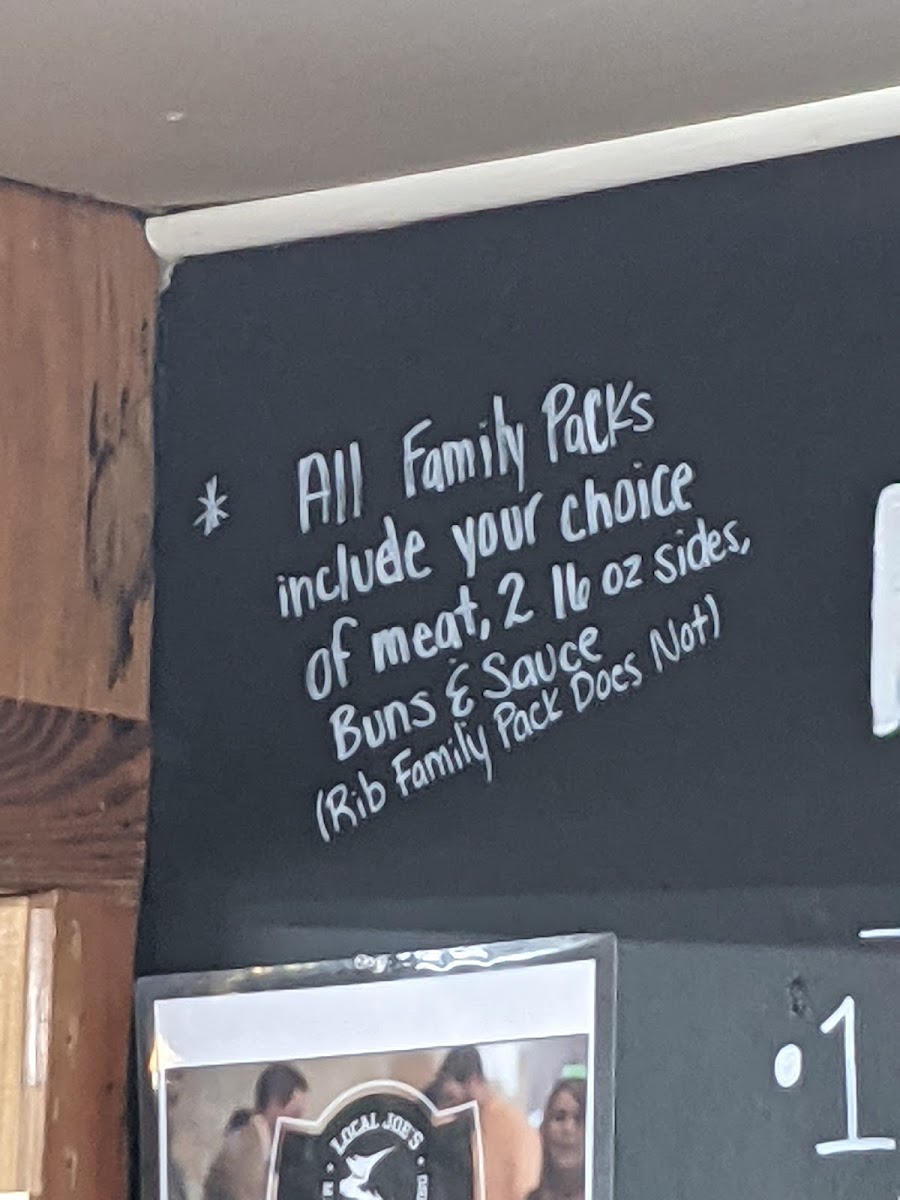 * All Family Packs
include your choice
of meat, 2 16 oz sides,
Buns & Sauce
(Rib Family Pack Does Not)
•1
LOCAL JOE'S